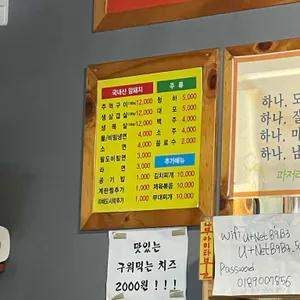 국내산 암돼지
주먹구이 12,000
생삼겹살 12,000
생목살 12,000
물/비빔냉면 4,000
소면 4,000
팥도비빔면 3,000
라면 3,000
공기밥 1,000
계란찜추가 1,000
야채도시락추가 1,000
주류
청하 5,000
대포 5,000
맥주 4,000
소주 4,000
음료수 2,000
추가메뉴
김치찌개 10,000
제육볶음 10,000
부대찌개 10,000
맛있는
구워먹는 치즈
2000원!!!
하나, 도
하나, 잘
하나,
하나, 남
파저리
Wifi U+Net B9B3
U+Net B9B3_5G
Password